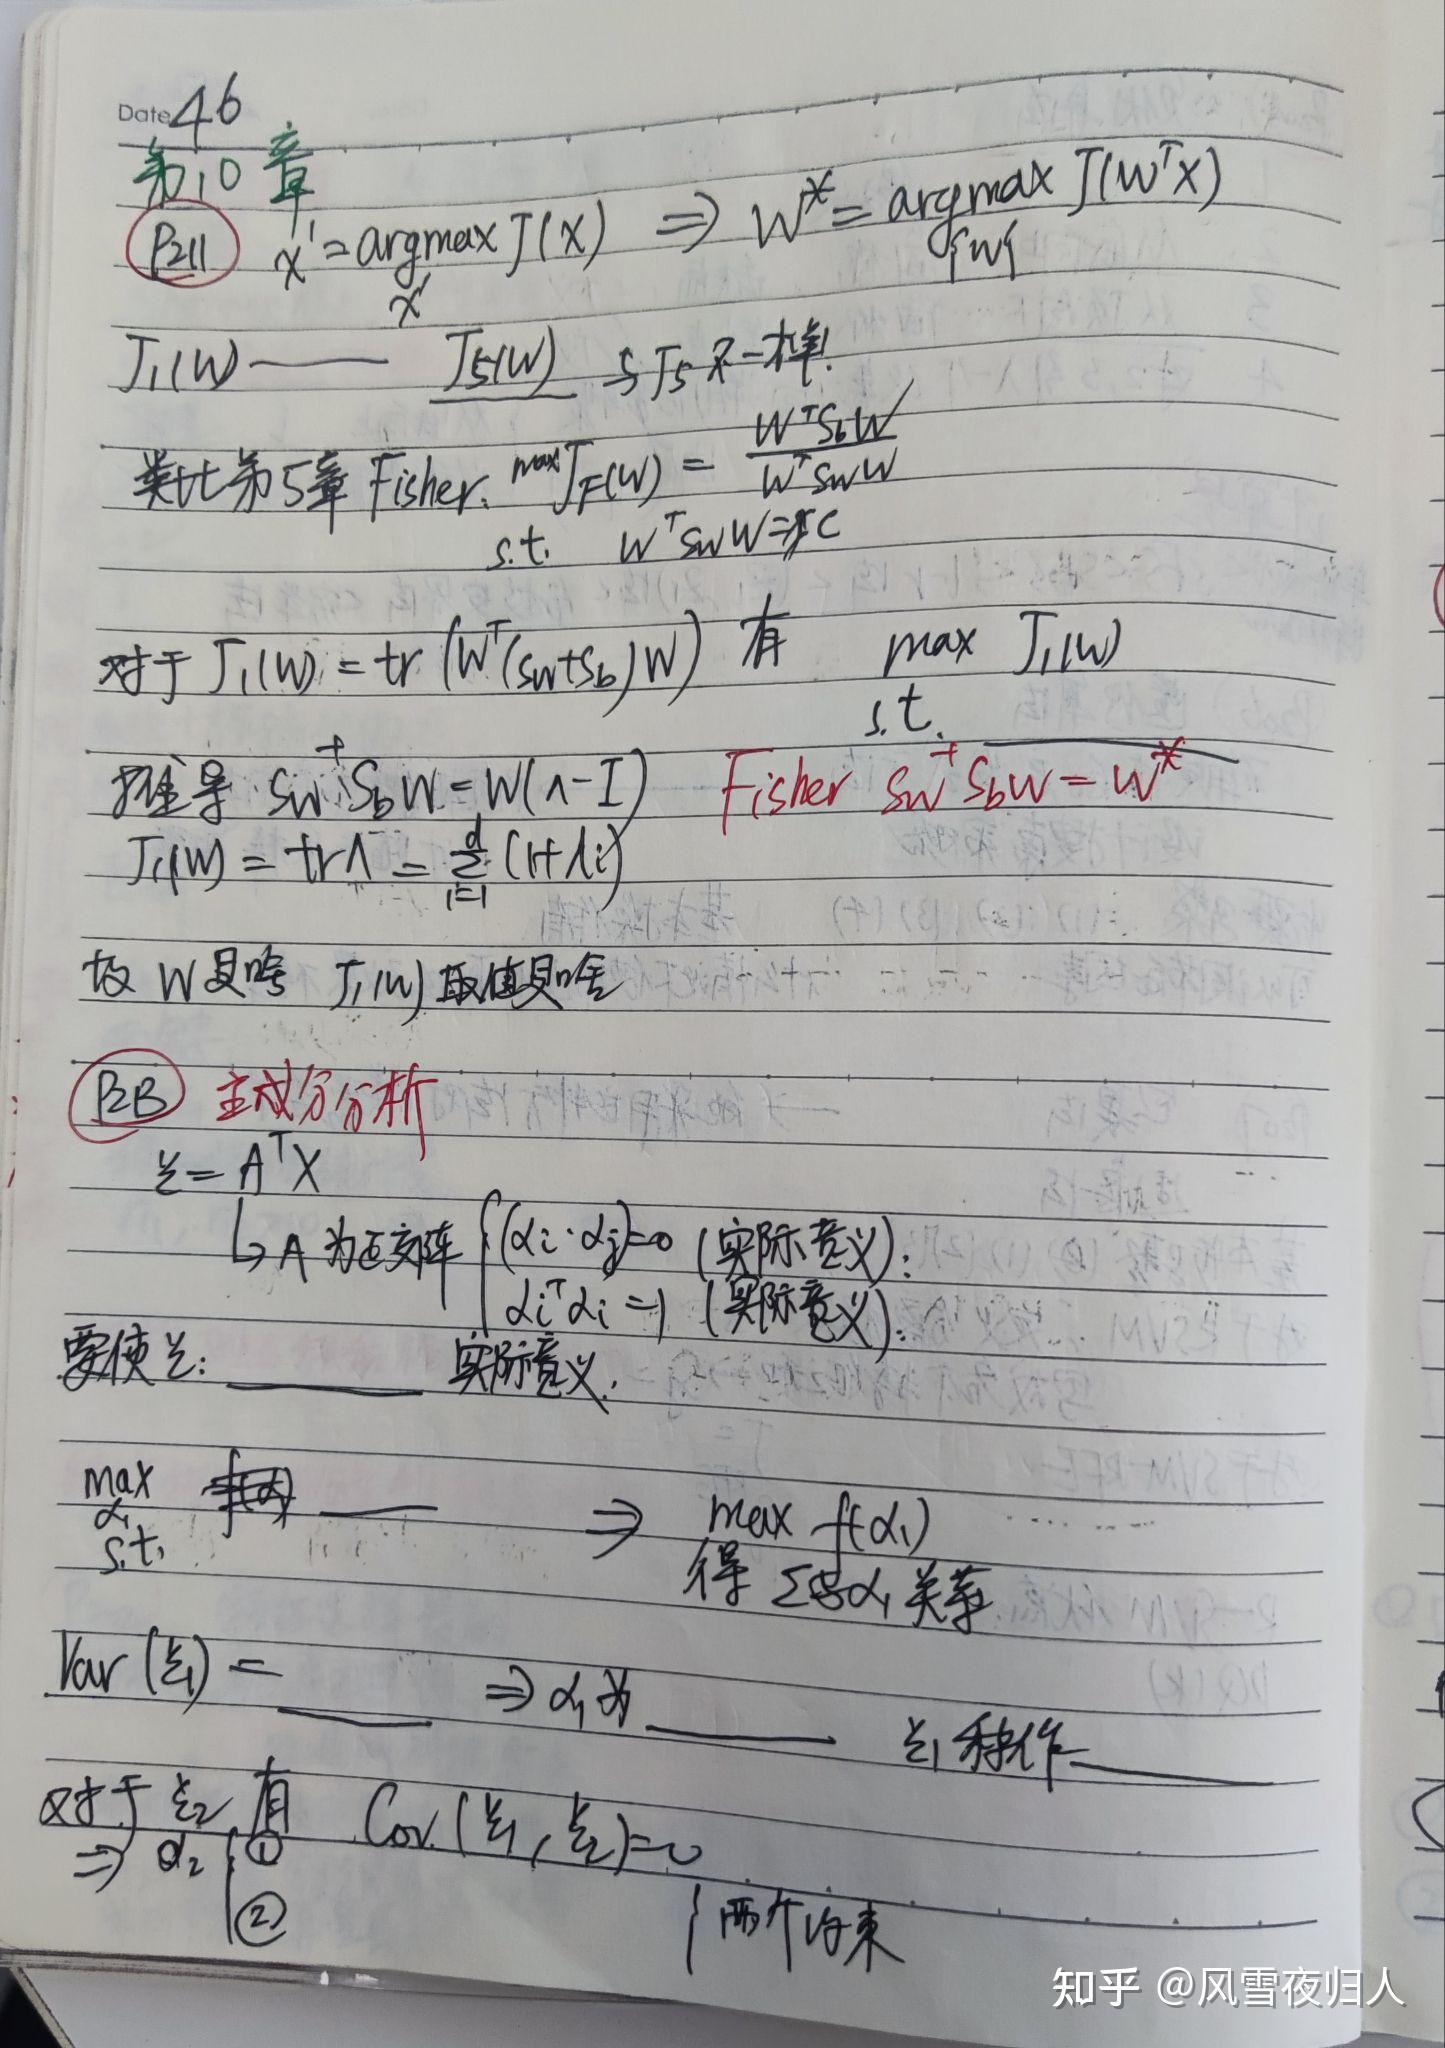 Date 46
第10章
P211 x' = argmax J(x) ⇒ W* = argmax J(WᵀX)
x' {W}
J₁(W) —— J5(W) 与J5不一样!
类比第5章 Fisher. max J_F(W) = WᵀS_bW / WᵀS_wW
s.t. WᵀS_wW = C
对于 J₁(W) = tr(Wᵀ(S_w+S_b)W) 有 max J₁(W)
s.t.
推导 S_w⁻¹S_bW = W(Λ-I) Fisher S_w⁻¹S_bW = W*
J₁(W) = trΛ = Σ_{i=1}^{d} (1+λi)
故 W是啥 J₁(W) 取值是啥
P213 主成分分析
ξ = AᵀX
↳ A为正交阵 { (αi·αj)=0 (实际意义):
αiᵀαi = 1 (实际意义):
要使ξ: 实际意义.
max ⇒ max f(α₁)
α₁
s.t. 得 Σ与α₁关系
Var(ξ₁) = ⇒ α₁为 ξ₁称作
对于ξ₂有 Cov.(ξ₁, ξ₂)=0
⇒ α₂ { ①
② { 两个约束
知乎 @风雪夜归人